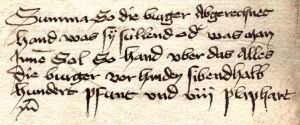 Summa So die burger Abgerechnet
hand was sÿ sullend od was man
Innen Sol So hand uber das Alles
die burger vor handen sibendhalb
hundert pfunt und viiij pliphart